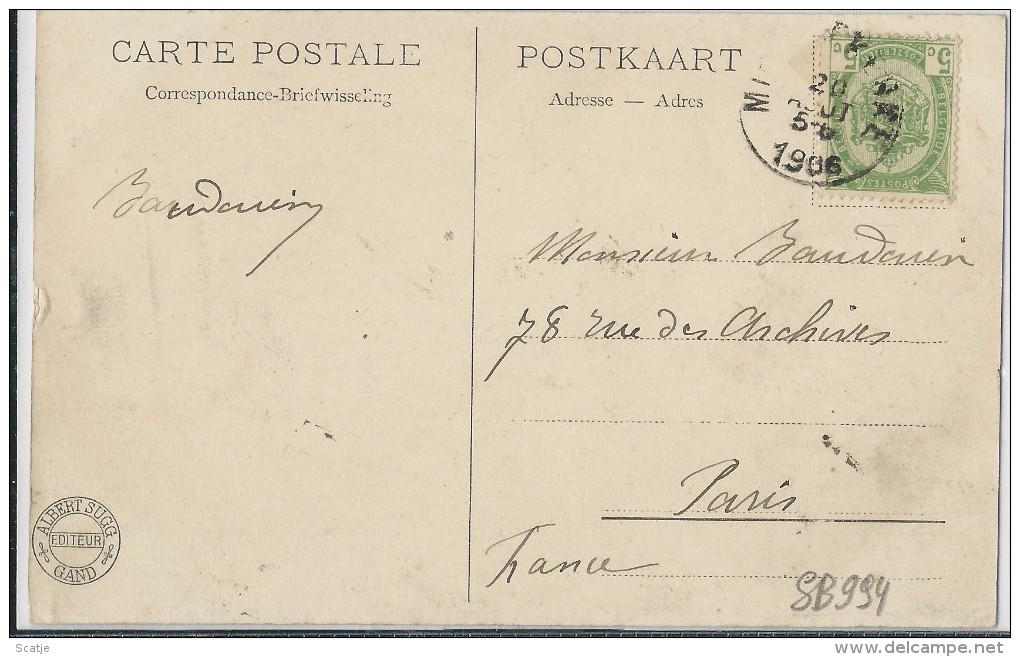 CARTE POSTALE
Correspondance-Briefwisseling
Baudouin
ALBERT SUGG
EDITEUR
GAND
POSTKAART
Adresse — Adres
20
5-6
1906
5 c
5 c
BELGIQUE
POSTES
Monsieur Baudouin
78 rue des Archives
Paris
France
SB994
Scatje
delcampe.net